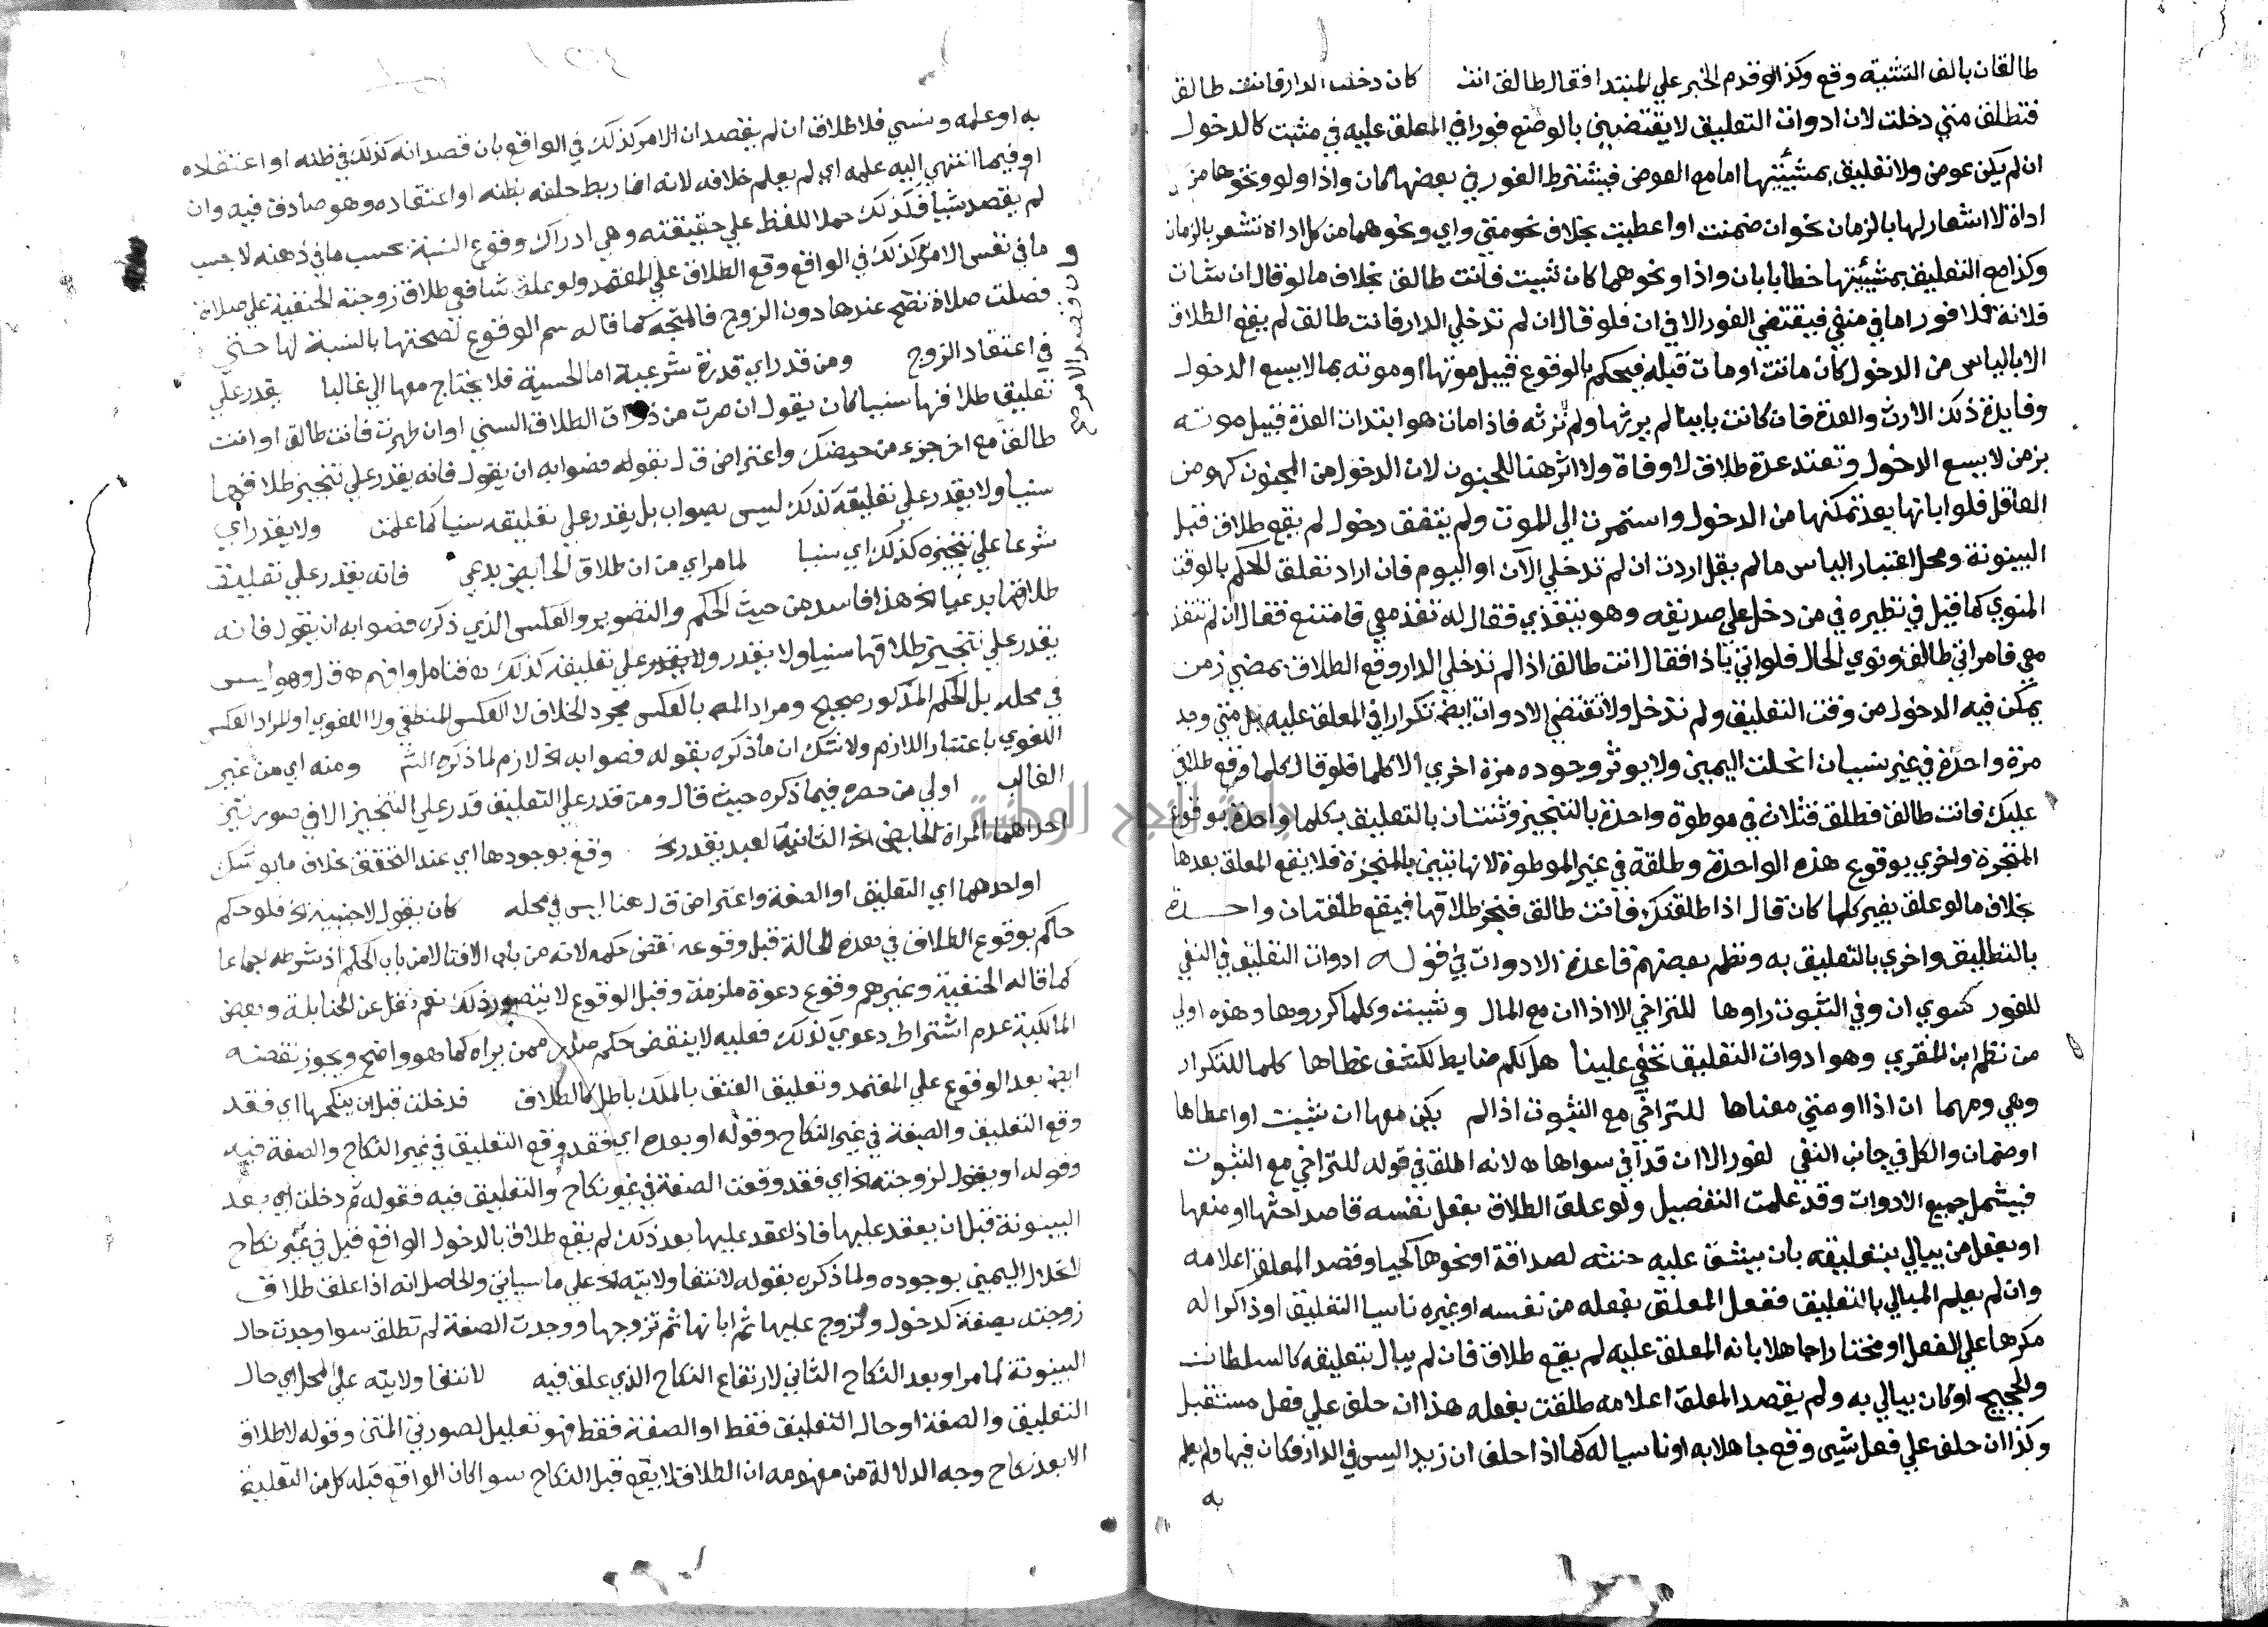 طالقان بالف التثنية وقع وكذا لو قدم الخبر علي المبتدا فقال طالق انت كان دخلت الدار فانت طالق
فتطلق متي دخلت لان ادوات التعليق لا يقتضين بالوضع فورا في المعلق عليه في مثبت كالدخول
ان لم يكن عوض ولا تعليق بمشيئتها اما مع العوض فيشترط الفور في بعضها كان واذا ولو ونحوها من
اداة لا اشعار لها بالزمان نحو ان ضمنت او اعطيت بخلاف نحو متي واي ونحوهما من كل اداة تشعر بالزمان
وكذا مع التعليق بمشيئتها خطابا بان واذا ونحوهما كان شيت فانت طالق بخلاف ما لو قال ان شات
فلانة فلا فور اما في منفي فيقتضي الفور الا في ان فلو قال ان لم تدخلي الدار فانت طالق لم يقع الطلاق
الا بالياس من الدخول كان ماتت او مات قبله فيحكم بالوقوع قبيل موتها او موته بما لا يسع الدخول
وفايدة ذلك الارث والعدة فان كانت باينا لم يرثها ولم ترثه فاذا مات هو ابتدات العدة قبيل موته
بزمن لا يسع الدخول وتعتد عدة طلاق لا وفاة ولا اثر هنا للجنون لان الدخول من المجنون كهو من
العاقل فلو ابانها بعد تمكنها من الدخول واستمرت الي الموت ولم يتفق دخول لم يقع طلاق قبل
البينونة ومحل اعتبار الياس ما لم يقل اردت ان لم تدخلي الآن او اليوم فان اراد تعلق الحكم بالوقت
المنوي كما قيل في نظيره في من دخل علي صديقه وهو يتغذي فقال له تغذ معي فامتنع فقال ان لم تتغذ
معي فامراتي طالق ونوي الحال فلو اتي باذا فقال انت طالق اذا لم تدخلي الدار وقع الطلاق بمضي زمن
يمكن فيه الدخول من وقت التعليق ولم تدخل ولا تقتضي الادوات ايضا تكرارا في المعلق عليه بل متي وجد
مرة واحدة في غير نسيان انحلت اليمين ولا يوثر وجوده مرة اخري الا كلما فلو قال كلما وقع طلاقي
عليك فانت طالق فطلق فثلاث في موطوة واحدة بالتنجيز وثنتان بالتعليق بكلما واحدة بوقوع
المنجزة واخري بوقوع هذه الواحدة وطلقة في غير الموطوة لانها تبين بالمنجزة فلا يقع المعلق بعدها
بخلاف ما لو علق بغير كلما كان قال اذا طلقتك فانت طالق فنجز طلاقها فيقع طلقتان واحدة
بالتطليق واخري بالتعليق به ونظم بعضهم قاعدة الادوات في قوله ادوات التعليق في النفي
للفور سوي ان وفي الثبوت راوها للتراخي الا اذا ان مع المال وشيت وكلما كرروها وهذه اولي
من نظم ابن المقري وهو ادوات التعليق تخفي علينا هل لكم ضابط لكشف غطاها كلما للتكرار
وهي ومهما ان اذا او متي معناها للتراخي مع الثبوت اذا لم يكن معها ان شيت او اعطاها
او ضمان والكل في جانب النفي لفور الا ان قد آ في سواها ه لانه اطلق في قوله للتراخي مع الثبوت
فيشمل جميع الادوات وقد علمت التفصيل ولو علق الطلاق بفعل نفسه قاصدا حثها او منعها
او بفعل من يبالي بتعليقه بان يشق عليه حنثه لصداقة او نحوها كحيا وقصد المعلق اعلامه
وان لم يعلم المبالي بالتعليق ففعل المعلق بفعله من نفسه او غيره ناسيا التعليق او ذاكرا له
مكرها علي الفعل او مختارا جاهلا بانه المعلق عليه لم يقع طلاق فان لم يبال بتعليقه كالسلطان
والحجيج او كان يبالي به ولم يقصد المعلق اعلامه طلقت بفعله هذا ان حلف علي فعل مستقبل
وكذا ان حلف علي فعل شي وقع جاهلا به او ناسيا له كما اذا حلف ان زيدا ليس في الدار فكان فيها ولم يعلم
به
به او علمه ونسي فلا طلاق ان لم يقصد ان الامر كذلك في الواقع بان قصد انه كذلك في ظنه او اعتقاده
او فيما انتهي اليه علمه اي لم يعلم خلافه لانه انما ربط حلفه بظنه او اعتقاده وهو صادق فيه وان
لم يقصد شيا فكذلك حملا للفظ علي حقيقته وهي ادراك وقوع النسبة بحسب ما في ذهنه لا بحسب
ما في نفس الامر كذلك في الواقع وقع الطلاق علي المعتمد ولو علق شافعي طلاق زوجته الحنفية علي صلاة
فصلت صلاة تصح عندها دون الزوج فالمتجه كما قاله سم الوقوع لصحتها بالنسبة لها حتي
في اعتقاد الزوج ومن قدر اي قدرة شرعية اما الحسية فلا يحتاج معها الي غالبا يقدر علي
تعليق طلاقها سنيا كان يقول ان صرت من ذوات الطلاق السني او ان طهرت فانت طالق او انت
طالق مع اخر جزء من حيضك واعتراض ق ل بقوله فصوابه ان يقول فانه يقدر علي تنجيز طلاقها
سنيا ولا يقدر علي تعليقه كذلك ليس بصواب بل يقدر علي تعليقه سنيا كما علمت ولا يقدر اي
شرعا علي تنجيزه كذلك اي سنيا لما مر اي من ان طلاق الحايض بدعي فانه يقدر علي تعليق
طلاقها بدعيا الخ هذا فاسد من حيث الحكم والتصوير والعكس الذي ذكره فصوابه ان يقول فانه
يقدر علي تنجيز طلاقها سنيا ولا يقدر ولا يقدر علي تعليقه كذلك ه فتامل وافهم ه ق ل وهو ليس
في محله بل الحكم المذكور صحيح ومراد المص بالعكس مجرد الخلاف لا العكس المنطقي ولا اللغوي او المراد العكس
اللغوي باعتبار اللازم ولا شك ان ما ذكره بقوله فصوابه الخ لازم لما ذكره الش ومنه اي من غير
الغالب اولي من حصره فيما ذكره حيث قال ومن قدر علي التعليق قدر علي التنجيز الا في صورتين
احداهما المراة الحايض الخ الثانية العبد يقدر الخ وقع بوجودها اي عند التحقق بخلاف ما لو شك
او احدهما اي التعليق او الصفة واعتراض ق ل هنا ليس في محله كان يقول لاجنبية الخ فلو حكم
حاكم بوقوع الطلاق في هذه الحالة قبل وقوعه نقض حكمه لانه من باب الافتا لا من باب الحكم اذ شرطه اجماعا
كما قاله الحنفية وغيرهم وقوع دعوة ملزمة وقبل الوقوع لا يتصور ذلك نعم نقل عن الحنابلة وبعض
المالكية عدم اشتراط دعوي لذلك فعليه لا ينقض حكم صدر ممن يراه كما هو واضح ويجوز نقضه
ايضا بعد الوقوع علي المعتمد وتعليق العتق بالملك باطل كالطلاق فدخلت قبل ان ينكحها اي فقد
وقع التعليق والصفة في غير النكاح وقوله او بعده اي فقد وقع التعليق في غير النكاح والصفة فيه
وقوله او يقول لزوجته الخ اي فقد وقعت الصفة في غير نكاح والتعليق فيه فقوله ثم دخلت اي بعد
البينونة قبل ان يعقد عليها فاذا عقد عليها بعد ذلك لم يقع طلاق بالدخول الواقع قبل في غير نكاح
لانحلال اليمين بوجوده ولما ذكره بقوله لانتفا ولايته الخ علي ما سياتي والحاصل انه اذا علق طلاق
زوجته بصفة كدخول وتزوج عليها ثم ابانها ثم تزوجها ووجدت الصفة لم تطلق سوا وجدت حال
البينونة لما مر او بعد النكاح الثاني لارتفاع النكاح الذي علق فيه لانتفا ولايته علي المحل اي حال
التعليق والصفة او حالة التعليق فقط او الصفة فقط فهو تعليل لصورتي المتن وقوله لا طلاق
الا بعد نكاح وجه الدلالة من مفهومه ان الطلاق لا يقع قبل النكاح سوا كان الواقع قبله كل من التعليق